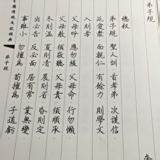 弟子規
總敘
弟子規 聖人訓 首孝弟 次謹信
汎愛眾 而親仁 有餘力 則學文
入則孝
父母呼 應勿緩 父母命 行勿懶
父母教 須敬聽 父母責 須順承
冬則溫 夏則凊 晨則省 昏則定
出必告 反必面 居有常 業無變
事雖小 勿擅為 苟擅為 子道虧
弟子規